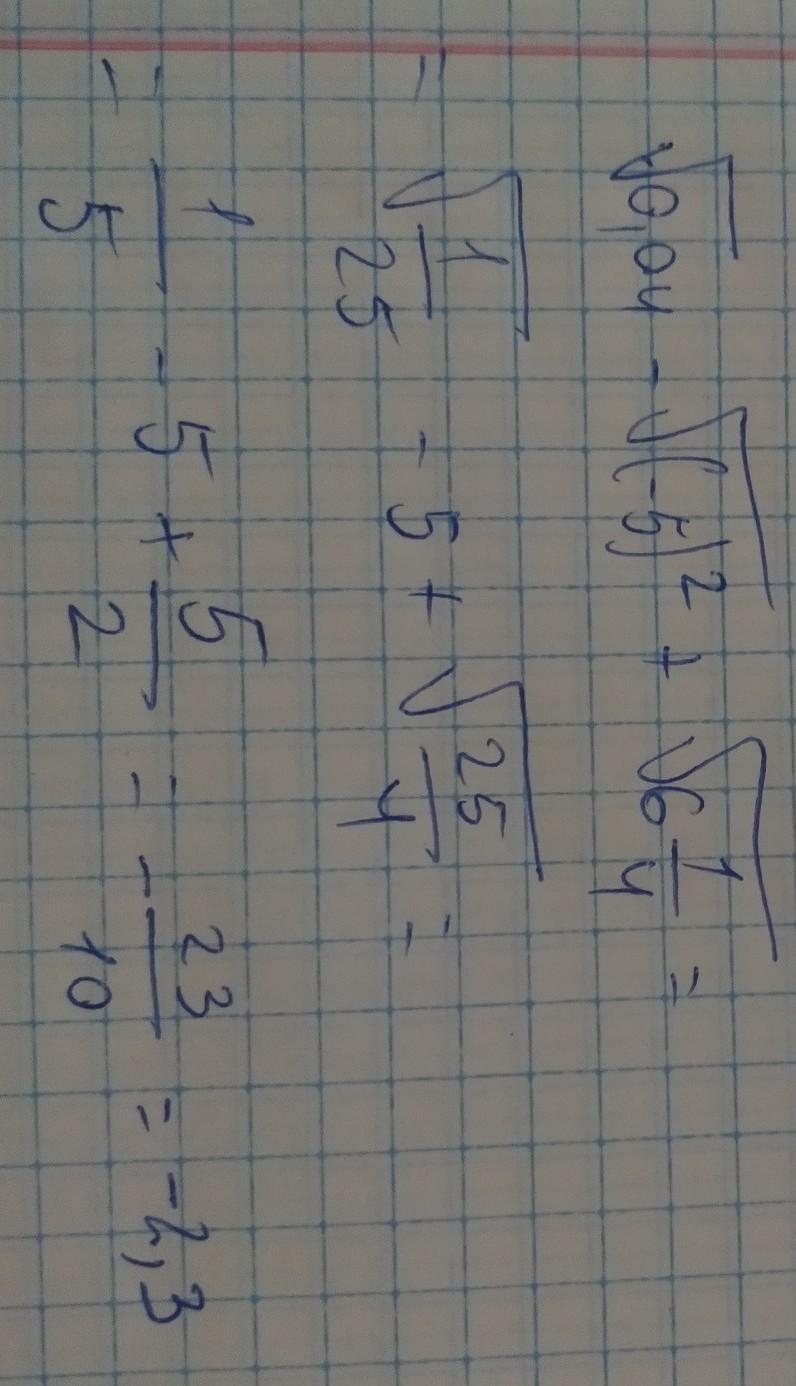 √0,04 - √(-5)² + √6 1/4 =
= √1/25 - 5 + √25/4 =
= 1/5 - 5 + 5/2 = - 23/10 = -2,3